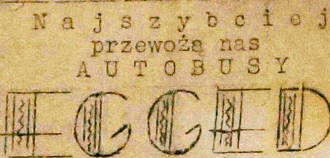 Najszybciej
przewożą nas
AUTOBUSY
EGGED